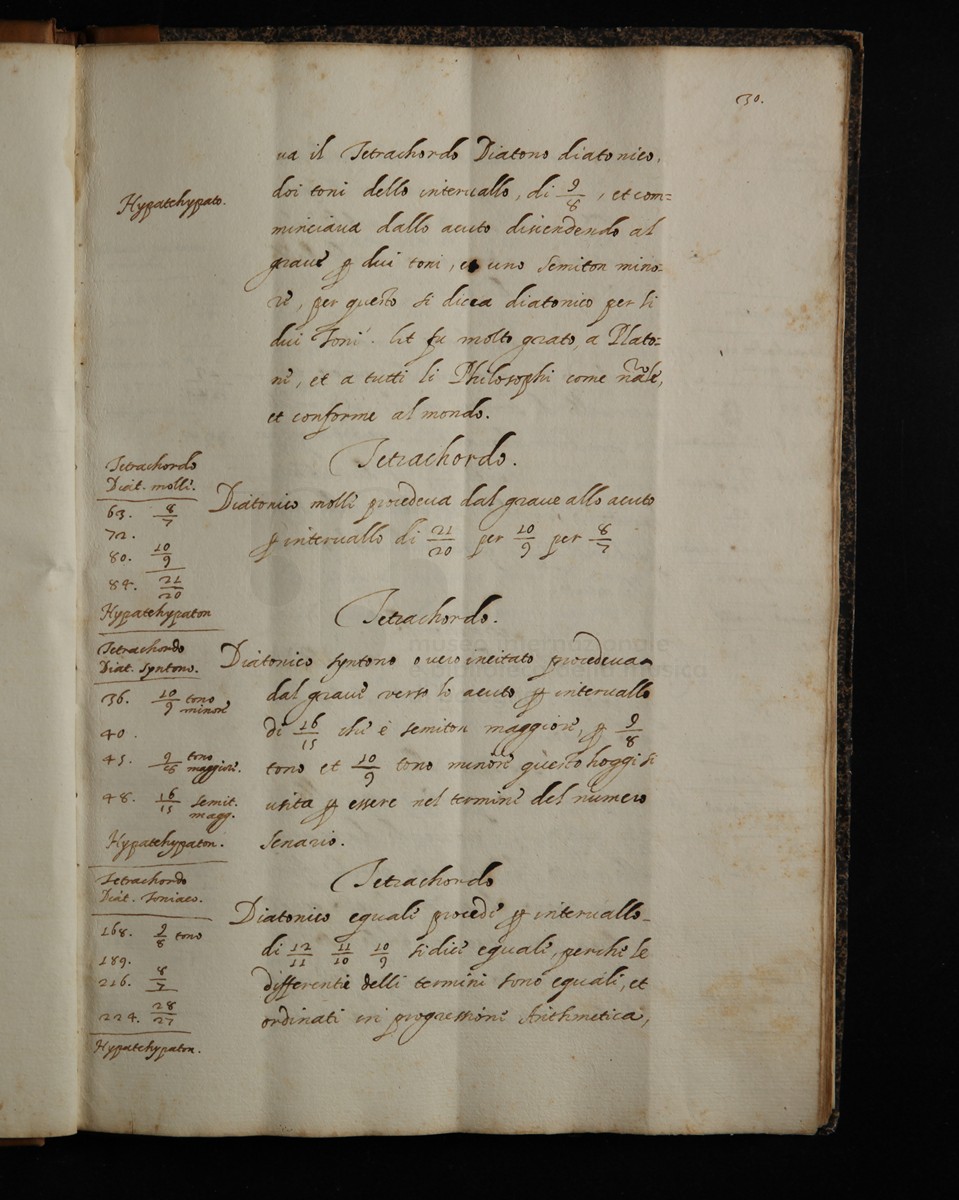 30.
ua il Tetrachordo Diatono diatonico,
doi toni dello interuallo, di 9/8, et com=
minciaua dallo acuto discendendo al
graue p dui toni, et uno semiton mino=
re, per questo si dicea diatonico per li
dui Toni. Et fu molto grato, a Plato=
ne, et a tutti li Philosophi come n̄ale,
et conforme al mondo.
Hypatehypato.
Tetrachordo.
Diatonico molle procedeua dal graue allo acuto
p interuallo di 21/20 per 10/9 per 8/7
Tetrachordo
Diat. molle.
63. 8/7
72.
80. 10/9
84. 21/20
Hypatehypaton
Tetrachordo.
Diatonico syntono o uero incitato procedeua
dal graue verso lo acuto p interuallo
di 16/15 che è semiton maggiore, p 9/8
tono et 10/9 tono minore questo hoggi si
usita p essere nel termine del numero
senario.
Tetrachordo
Diat. Syntono.
36. 10/9 tono minore
40.
45. 9/8 tono maggiore.
48. 16/15 semit. magg.
Hypatehypaton.
Tetrachordo
Diatonico equale procede p interuallo
di 12/11 11/10 10/9 si dice equale, perche le
differentie delli termini sono equali, et
ordinati in progressione Arithmetica,
Tetrachordo
Diat. Toniaco.
168. 9/8 tono
189.
216. 8/7
224. 28/27
Hypatehypaton.